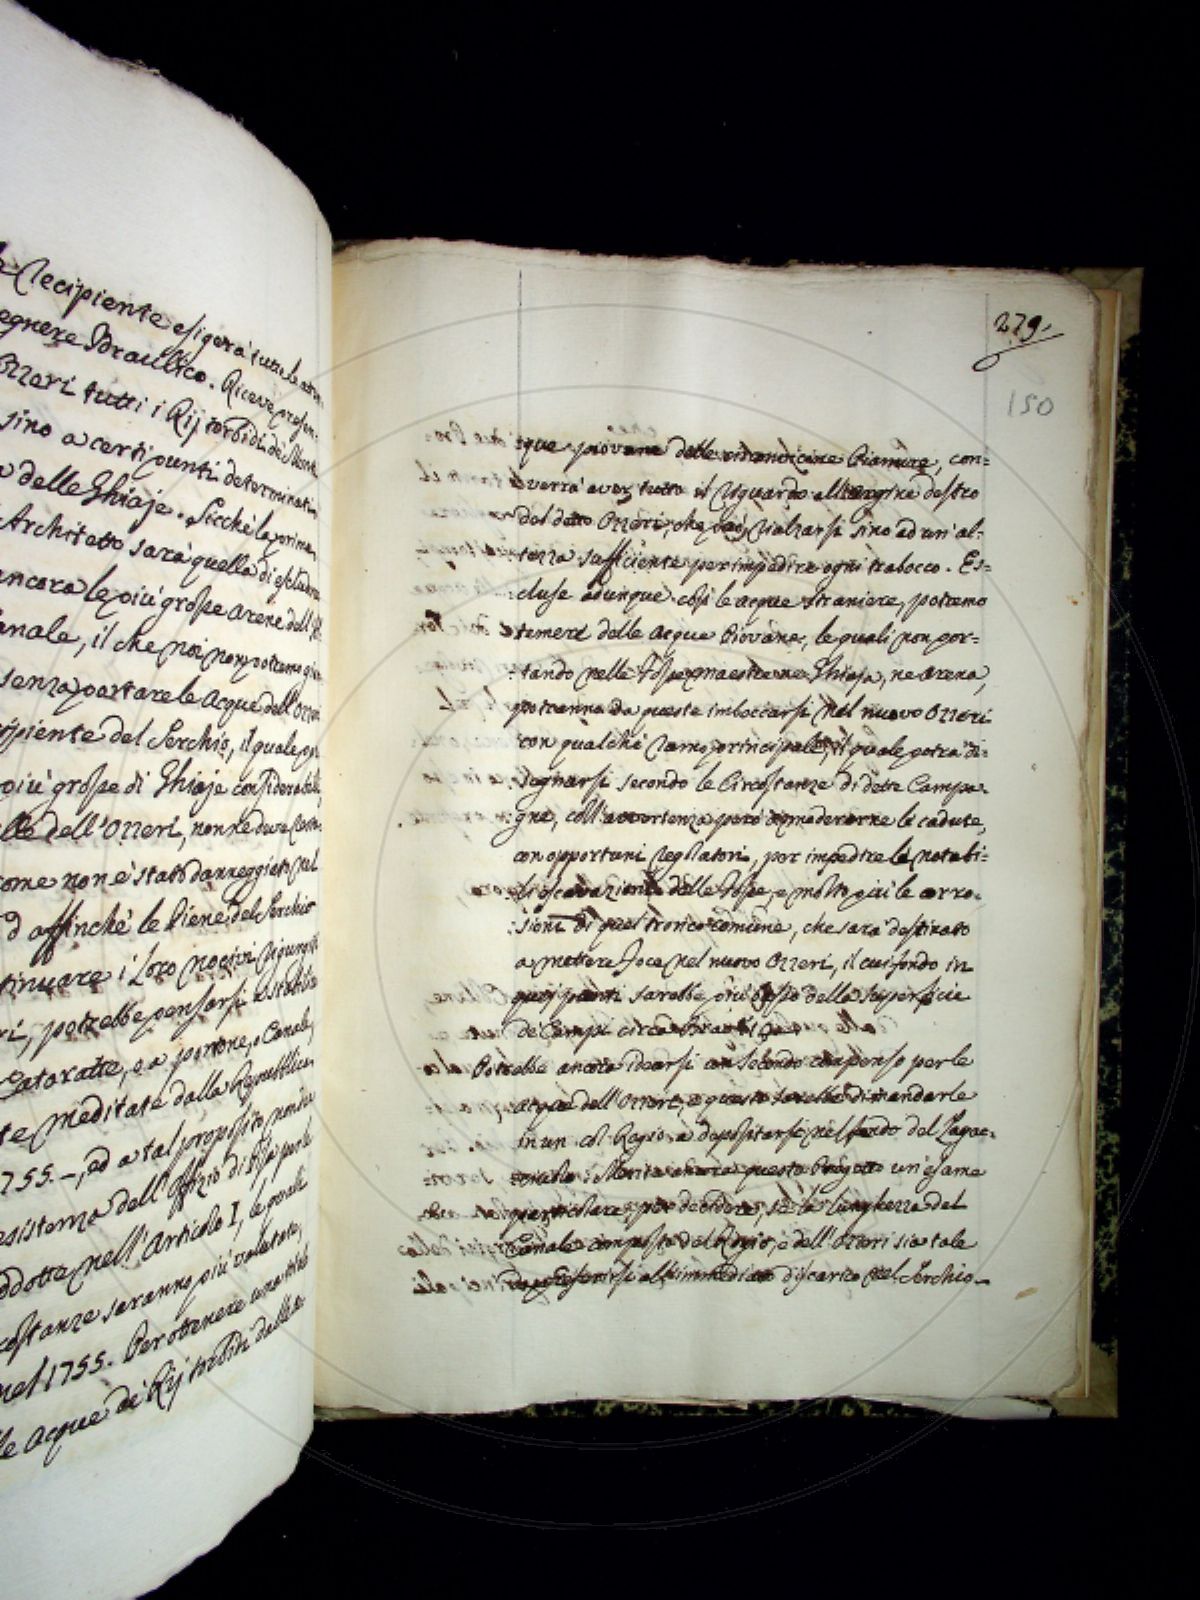 Recipiente esigerà tutte le
Idraulico. Riceve presen-
Ozzeri tutti i Rij torbidi de Monti
sino a certi punti determinati
delle Ghiaje. Sicchè la prima
Architetto sarà quella di escludere
ancora le più grosse arene dell'
Canale, il che noi non potremo
senza portare le Acque dell'Ozzeri
Recipiente del Serchio, il quale
più grosse di Ghiaje considerabili,
dell'Ozzeri, non ne deve
come non è stato danneggiato nel
ed affinchè le Piene del Serchio
i loro nocivi rigurgiti
potrebbe pensarsi a stabilire
Cataratte, e a Canale,
meditate dalla Repubblica
1755.-, ed a tal proposito
esistenza dell'Offizio di Pisa
addotte nell'Articolo I, le quali
saranno più valutate,
nel 1755. Per ottenere
le Acque di Rij torbidi dalle
279.
150
que piovane delle Pianure, con-
verrà aver tutto il riguardo all'argine destro
del detto Ozzeri, che rialzarsi sino ad un al-
tezza sufficiente per impedire ogni trabocco. Es-
cluse adunque così le acque straniere, potremo
temere delle Acque Piovane, le quali non por-
tando nelle Fosse maestre ne Ghiaja, ne arena,
potranno da queste imboccarsi nel nuovo Ozzeri
con qualche ramo principale, il quale potrà di-
segnarsi secondo le Circostanze di dette Campa-
gne, coll'avvertenza però di moderarne le cadute,
con opportuni regolatori, per impedire la notabi-
le escavazione delle Fosse, e molto più le corro-
sioni di quel tronco comune, che sarà destinato
a mettere foce nel nuovo Ozzeri, il cui fondo in
quei punti sarebbe più basso della superficie
de Campi circa Braccia
Potrebbe ancora idearsi un secondo compenso per le
acque dell'Ozzeri, e questo sarebbe di mandarle
in un col Rogio a depositarsi nel fondo del Lago
Merita ancora questo Progetto un esame
particolare, per decidere, se la lunghezza del
Canale composto del Rogio, e dell'Ozzeri sia tale
da preferirsi all'immediato discarico nel Serchio-